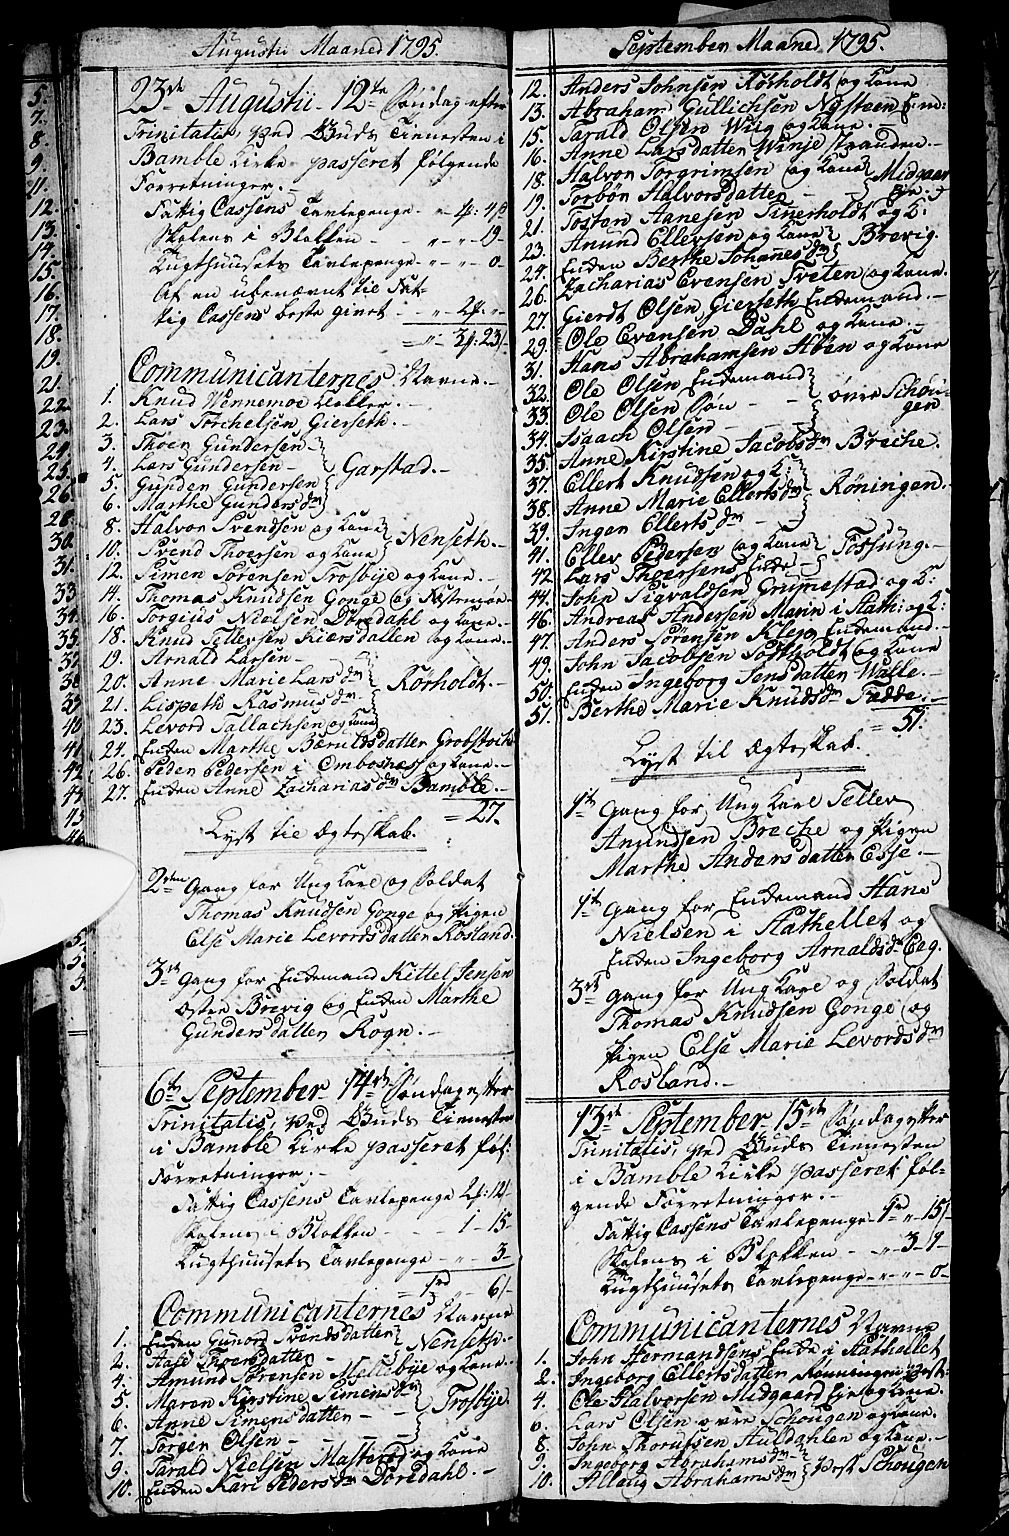 Augustii Maaned 1795.
23de Augustii 12te Søndag efter
Trinitatis, ved Guds Tienesten i
Bamble Kirke passeret følgende
Forretninger.
Fattig Cassens Tavlepenge - 4
Skolens i Blokken - - 19
Tugthuusets Tavlepenge - 0
Af en ubenævnt til Fat-
tig Cassens beste givet
Communicanternes Navne.
1. Knud Vennemoe
2. Lars Torchelsen Gierseth.
3. Thoer Gundersen
4. Lars Gundersen
Garstad.
5. Gunder Gundersen
6. Marthe Gundersdr
8. Halvor Svendsen og Kone
Nenseth.
10. Svend Thoersen og Kone
12. Simen Sørensen Trosbye og Kone.
14. Thomas Knudsen Gonge og Festemøe
16. Torgius Nielsen Dørdahl og Kone.
18. Knud Tellefsen Kiærsdallen og Kone.
19. Arnald Larsen
20. Anne Marie Larsdr
Rørholdt.
21. Lispeth Rasmusdr
23. Levord Tallachsen og Kone
24. Enken Marthe Bæruldsdatter Grobstoch
26. Peder Pedersen i Ombosnæss og Kone.
27. Enken Anne Zachariasdr Bamble.
= 27.
Lyst til Ægteskab.
2den Gang for Ung Karl og Soldat
Thomas Knudsen Gonge og Pigen
Else Marie Levordsdatter Rosland.
3de Gang for Enkemand Kittel Jensen
Øster Brevig og Enken Marthe
Gundersdatter Rogn.
6te September 14de Søndag efter
Trinitatis, ved Guds Tienesten
i Bamble Kirke passeret føl:
Forretninger.
Fattig Cassens Tavlepenge
Skolens i Blokken - - 1 - 15
Tugthuusets Tavlepenge - 3
Communicanternes Navne
1. Enken Gunor Svendsdatter
Nenseth.
2. Aase Thoersdatter
4. Amund Sørensen Mellebye og Kone.
5. Maren Kirstine Simensdr
Trosbye.
6. Anne Simensdatter
7. Torger Olsen
9. Tarald Nielsen Masterød og Kone
10. Enken Kari Pedersdr Dørdahl.
September Maaned 1795.
12. Anders Johnsen Rørholdt og Kone
13. Abraham Gullichsen Nysteen Em:
15. Tarald Olsen Wiig og Kone.
16. Anne Larsdatter Winje stranden.
18. Halvor Torgrimsen og Kone
Midgaar
Eje.
19. Torbør Halvorsdatter
21. Tosten Aanesen Tinerholdt og K:
23. Anund Ellevsen og Kone
Brevig.
24. Enken Berthe Johannesdr
26. Zacharias Evensen Tveten og Kone.
27. Gierdt Olsen Gierseth Enkemand.
29. Ole Evensen Dahl og Kone.
31. Hans Abrahamsen Abøe og Kone
32. Ole Olsen Enkemand
øvre Schou-
gen
33. Ole Olsen Søn
34. Isaach Olsen
35. Anne Kirstine Jacobsdr Breche.
37. Ellert Knudsen og K:
38. Anne Marie Ellertsdr
Røningen.
39. Inger Ellertsdr
41. Ellev Pedersen og Kone
Fossung.
42. Lars Thoersens Enke
44. John Sigvaldsen Grumestad og K:
46. Andreas Andersen Marin i Stath: og K:
47. Anders Sørensen Klep Enkemand.
49. John Jacobsen Tostholdt og Kone
50. Enken Ingeborg Jensdatter Walle.
51. Berthe Marie Knudsdr Fadde.
= 51.
Lyst til Ægteskab.
1te Gang for Ung Karl Tellev
Anundsen Breche og Pigen
Marthe Andersdatter Esse.
1te Gang for Enkemand Hans
Nielsen i Stathellet og
Enken Ingeborg Arnaldsdr Eeg.
3de Gang for Ung Karl og Soldat
Thomas Knudsen Gonge og
Pigen Else Marie Levordsdr
Rosland.
13de September 15de Søndag efter
Trinitatis, ved Guds Tienesten
i Bamble Kirke passeret føl-
gende Forretninger.
Fattig Cassens Tavlepenge
Skolens i Blokken - 3 - 9
Tugthuusets Tavlepenge - 0
Communicanternes Navne
1. John Hermandsens Enke i Stathellet
2. Ingeborg Ellertsdatter Rønningen
4. Ole Halvorsen Midgaard Eje og Kone.
6. Lars Olsen øvre Schougen og Kone.
8. John Thorufsen Auldahlen og Kone.
9. Ingeborg Abrahamsdr
Schougen
10. Alleug Abrahamsdr